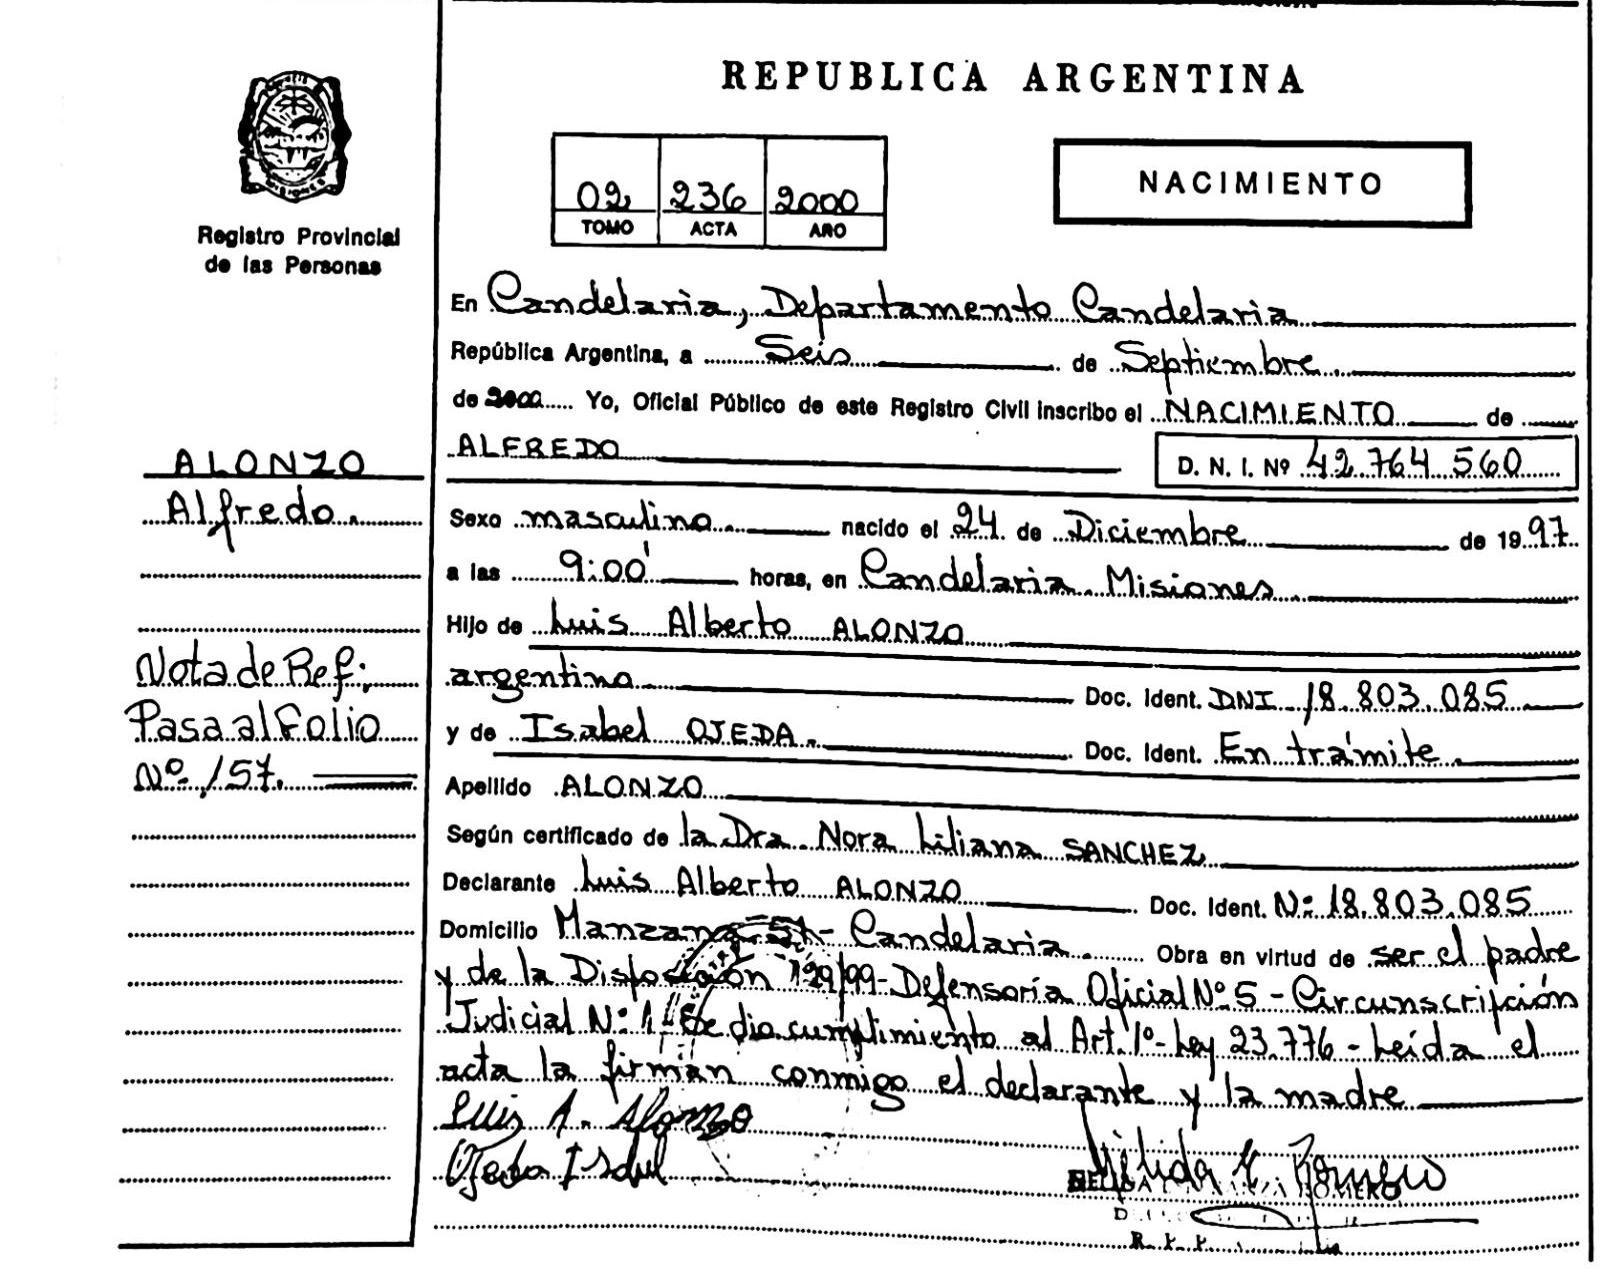 REPUBLICA ARGENTINA
MISIONES
Registro Provincial
de las Personas
02 236 2000
TOMO ACTA AÑO
NACIMIENTO
En Candelaria, Departamento Candelaria
República Argentina, a Seis de Septiembre
de 2000 Yo, Oficial Público de este Registro Civil inscribo el NACIMIENTO de
ALFREDO D. N. I. Nº 42.764.560
Sexo masculino nacido el 24 de Diciembre de 1997
a las 9:00' horas, en Candelaria. Misiones
Hijo de Luis Alberto ALONZO
argentino Doc. Ident. DNI 18.803.085
y de Isabel OJEDA. Doc. Ident. En trámite
Apellido ALONZO
Según certificado de la Dra. Nora Liliana SANCHEZ
Declarante Luis Alberto ALONZO Doc. Ident. Nº 18.803.085
Domicilio Manzana - Candelaria. Obra en virtud de ser el padre
y de la Disposición 199/99-Defensoría Oficial Nº 5 - Circunscripción
Judicial Nº 1 - Se dio cumplimiento al Art. 1º- Ley 23.776 - Leída el
acta la firman conmigo el declarante y la madre
Luis A. Alonzo
Ojeda Isabel
ROMERO
ALONZO
Alfredo.
Nota de Ref:
Pasa al Folio
Nº 157.